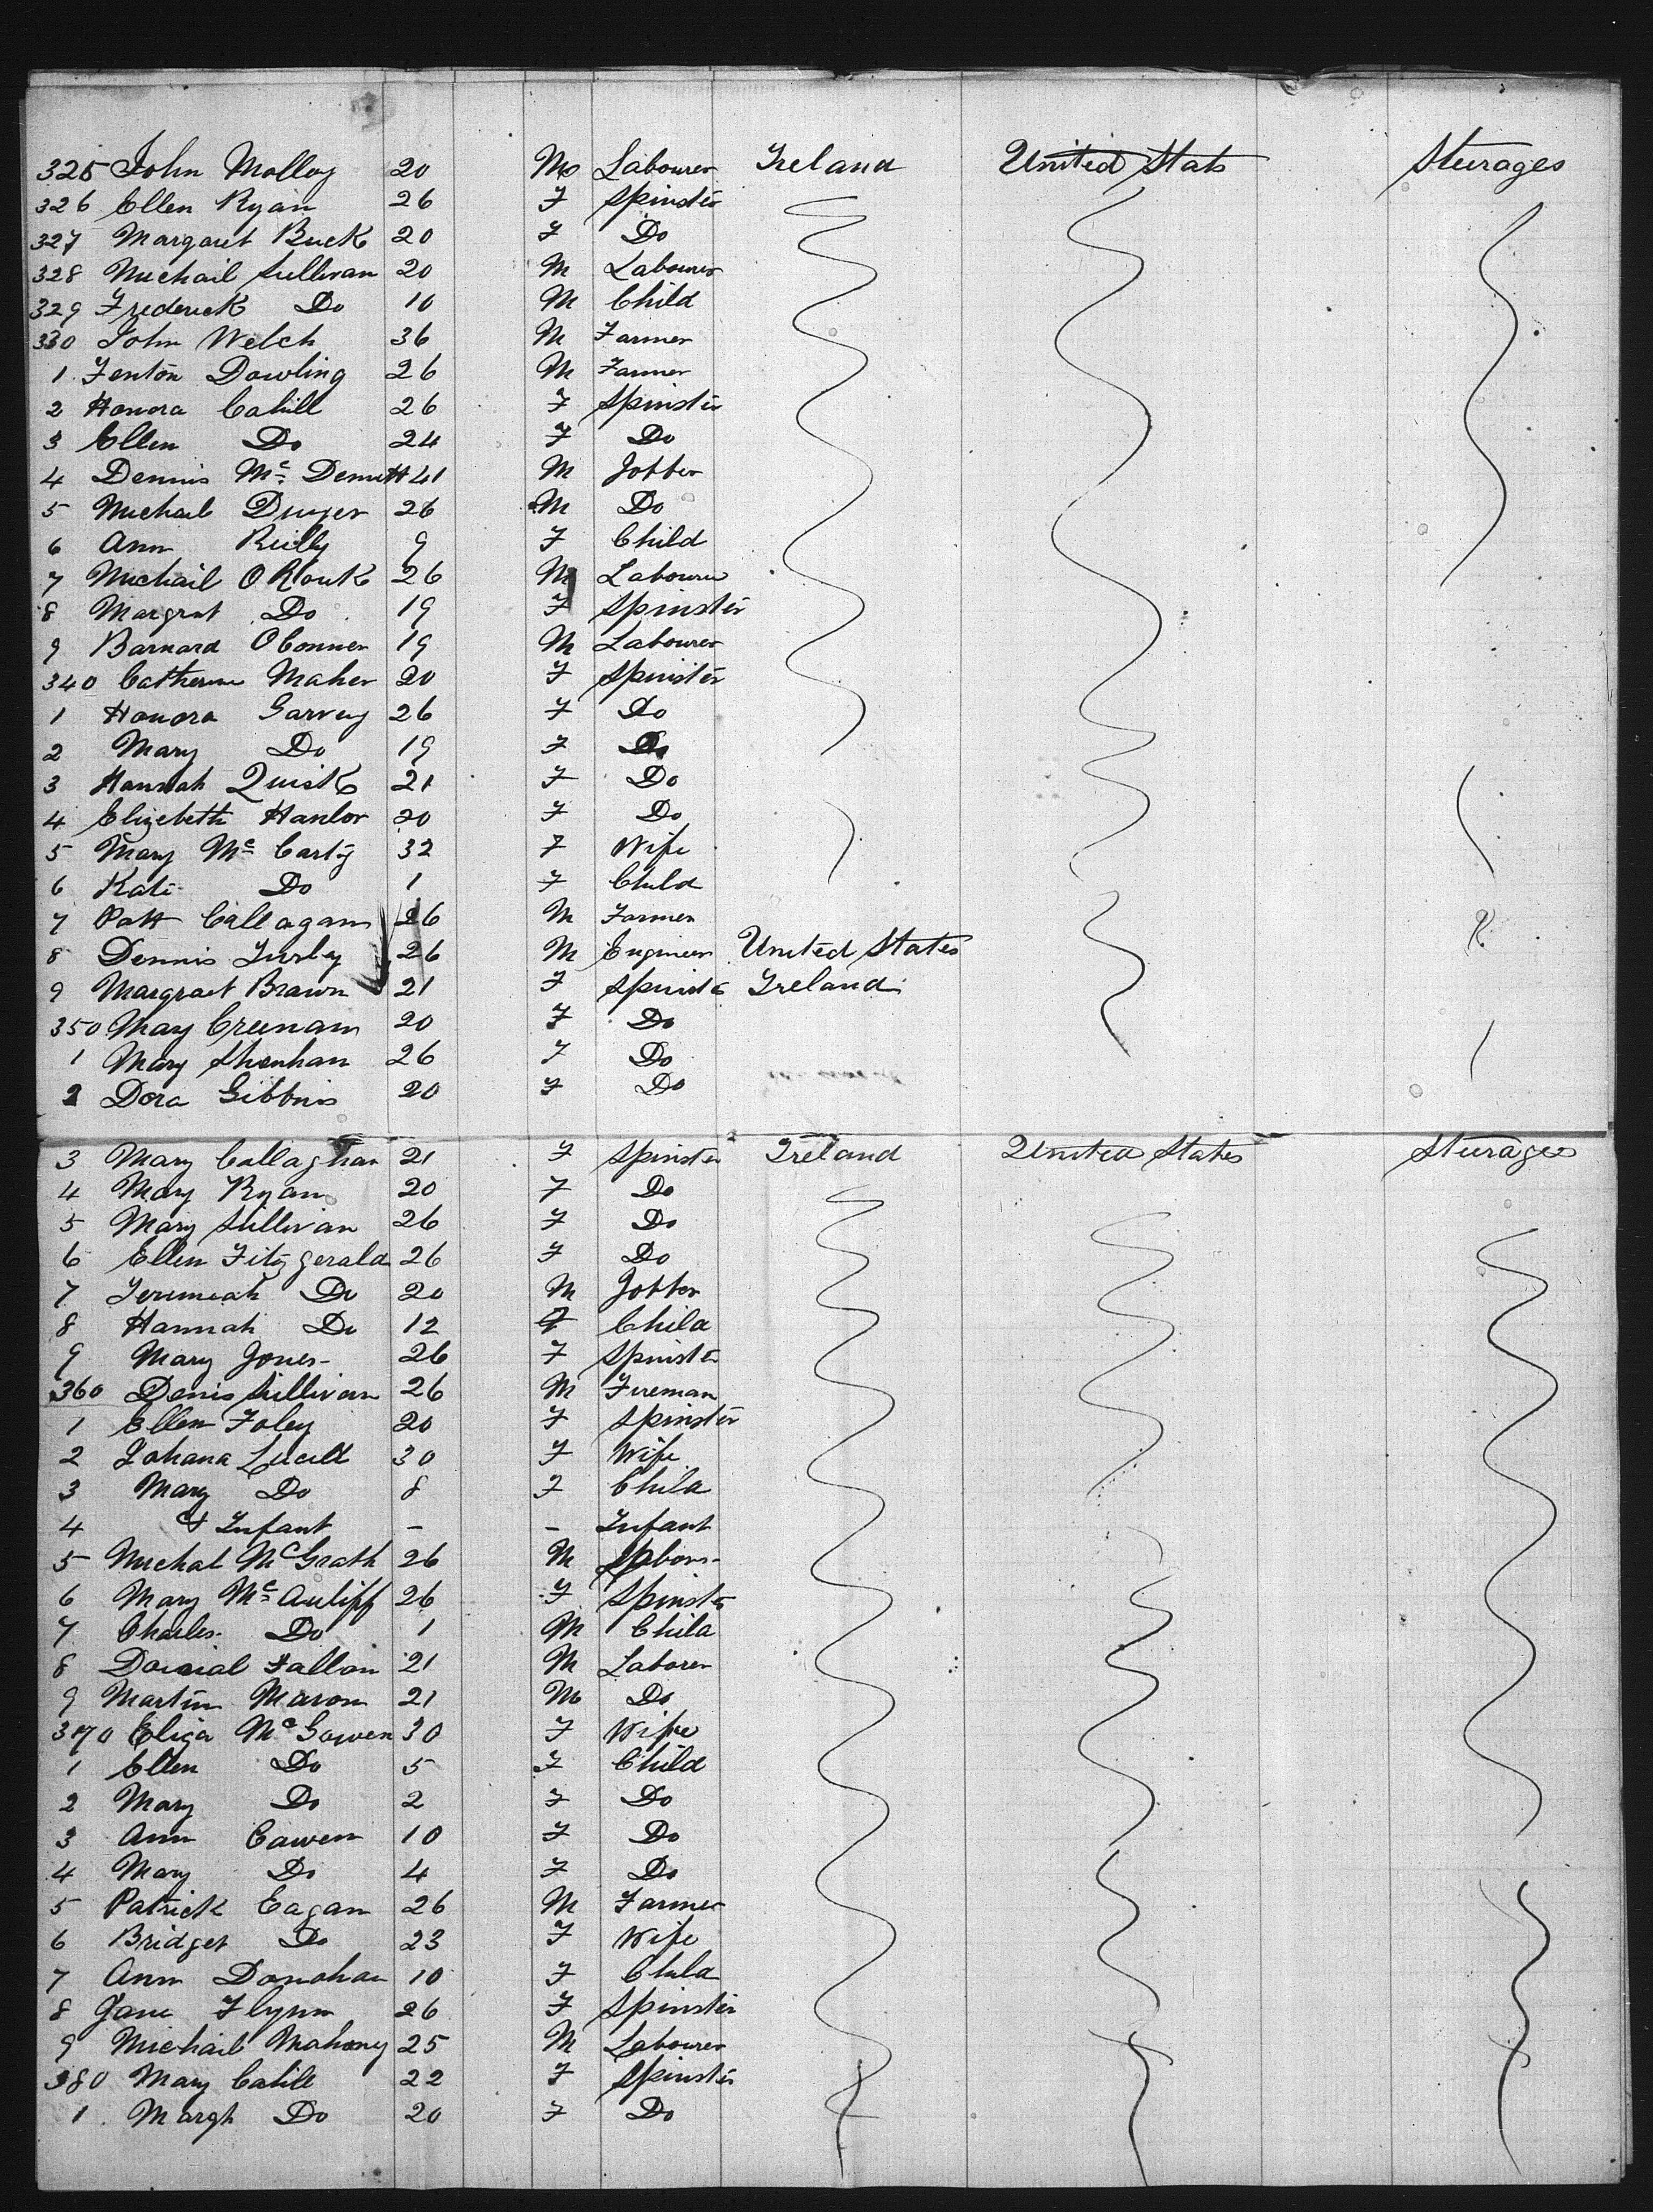 325 John Molloy 20 M Labourer Ireland United Stats Sturages
326 Ellen Ryan 26 F Spinster
327 Margaret Buck 20 F Do
328 Michail Sullivan 20 M Labourer
329 Frederick Do 10 M Child
330 John Welch 36 M Farmer
1 Fenton Dowling 26 M Farmer
2 Honora Cahill 26 F Spinster
3 Ellen Do 24 F Do
4 Dennis Mc Demitt 41 M Jobber
5 Michail Dwyer 26 M Do
6 Ann Reilly 9 F Child
7 Michail O Rouk 26 M Labourer
8 Margrat Do 19 F Spinster
9 Barnard OConner 19 M Labourer
340 Catherine Maher 20 F Spinster
1 Honora Garvey 26 F Do
2 Mary Do 19 F Do
3 Hannah Quisk 21 F Do
4 Elizebeth Hanlor 20 F Do
5 Mary Mc Carty 32 F Wife
6 Kate Do 1 F Child
7 Patt Callagan 26 M Farmer
8 Dennis Turley 26 M Engineer United States
9 Margraet Brawn 21 F Spinste Ireland
350 Mary Creenan 20 F Do
1 Mary Shenhan 26 F Do
2 Dora Gibbins 20 F Do
3 Mary Callaghan 21 F Spinster Ireland United States Sturages
4 Mary Ryan 20 F Do
5 Mary Sullivan 26 F Do
6 Ellen Fitzgerald 26 F Do
7 Jeremiah Do 20 M Jobber
8 Hannah Do 12 F Child
9 Mary Jones 26 F Spinster
360 Denis Sullivan 26 M Fireman
1 Ellen Foley 20 F Spinster
2 Johana 30 F Wife
3 Mary Do 8 F Child
4 & Infant - - Infant
5 Michal McGrath 26 M Labour
6 Mary Mc Auliff 26 F Spinster
7 Charles Do 1 M Child
8 Danial Fallon 21 M Laborer
9 Martin Maron 21 M Do
370 Eliza Mc Gowen 30 F Wife
1 Ellen Do 5 F Child
2 Mary Do 2 F Do
3 Ann Cawen 10 F Do
4 Mary Do 4 F Do
5 Patrick Eagan 26 M Farmer
6 Bridget Do 23 F Wife
7 Ann Donohan 10 F Child
8 Jane Flynn 26 F Spinster
9 Michail Mahony 25 M Labourer
380 Mary Cahill 22 F Spinster
1 Margh Do 20 F Do